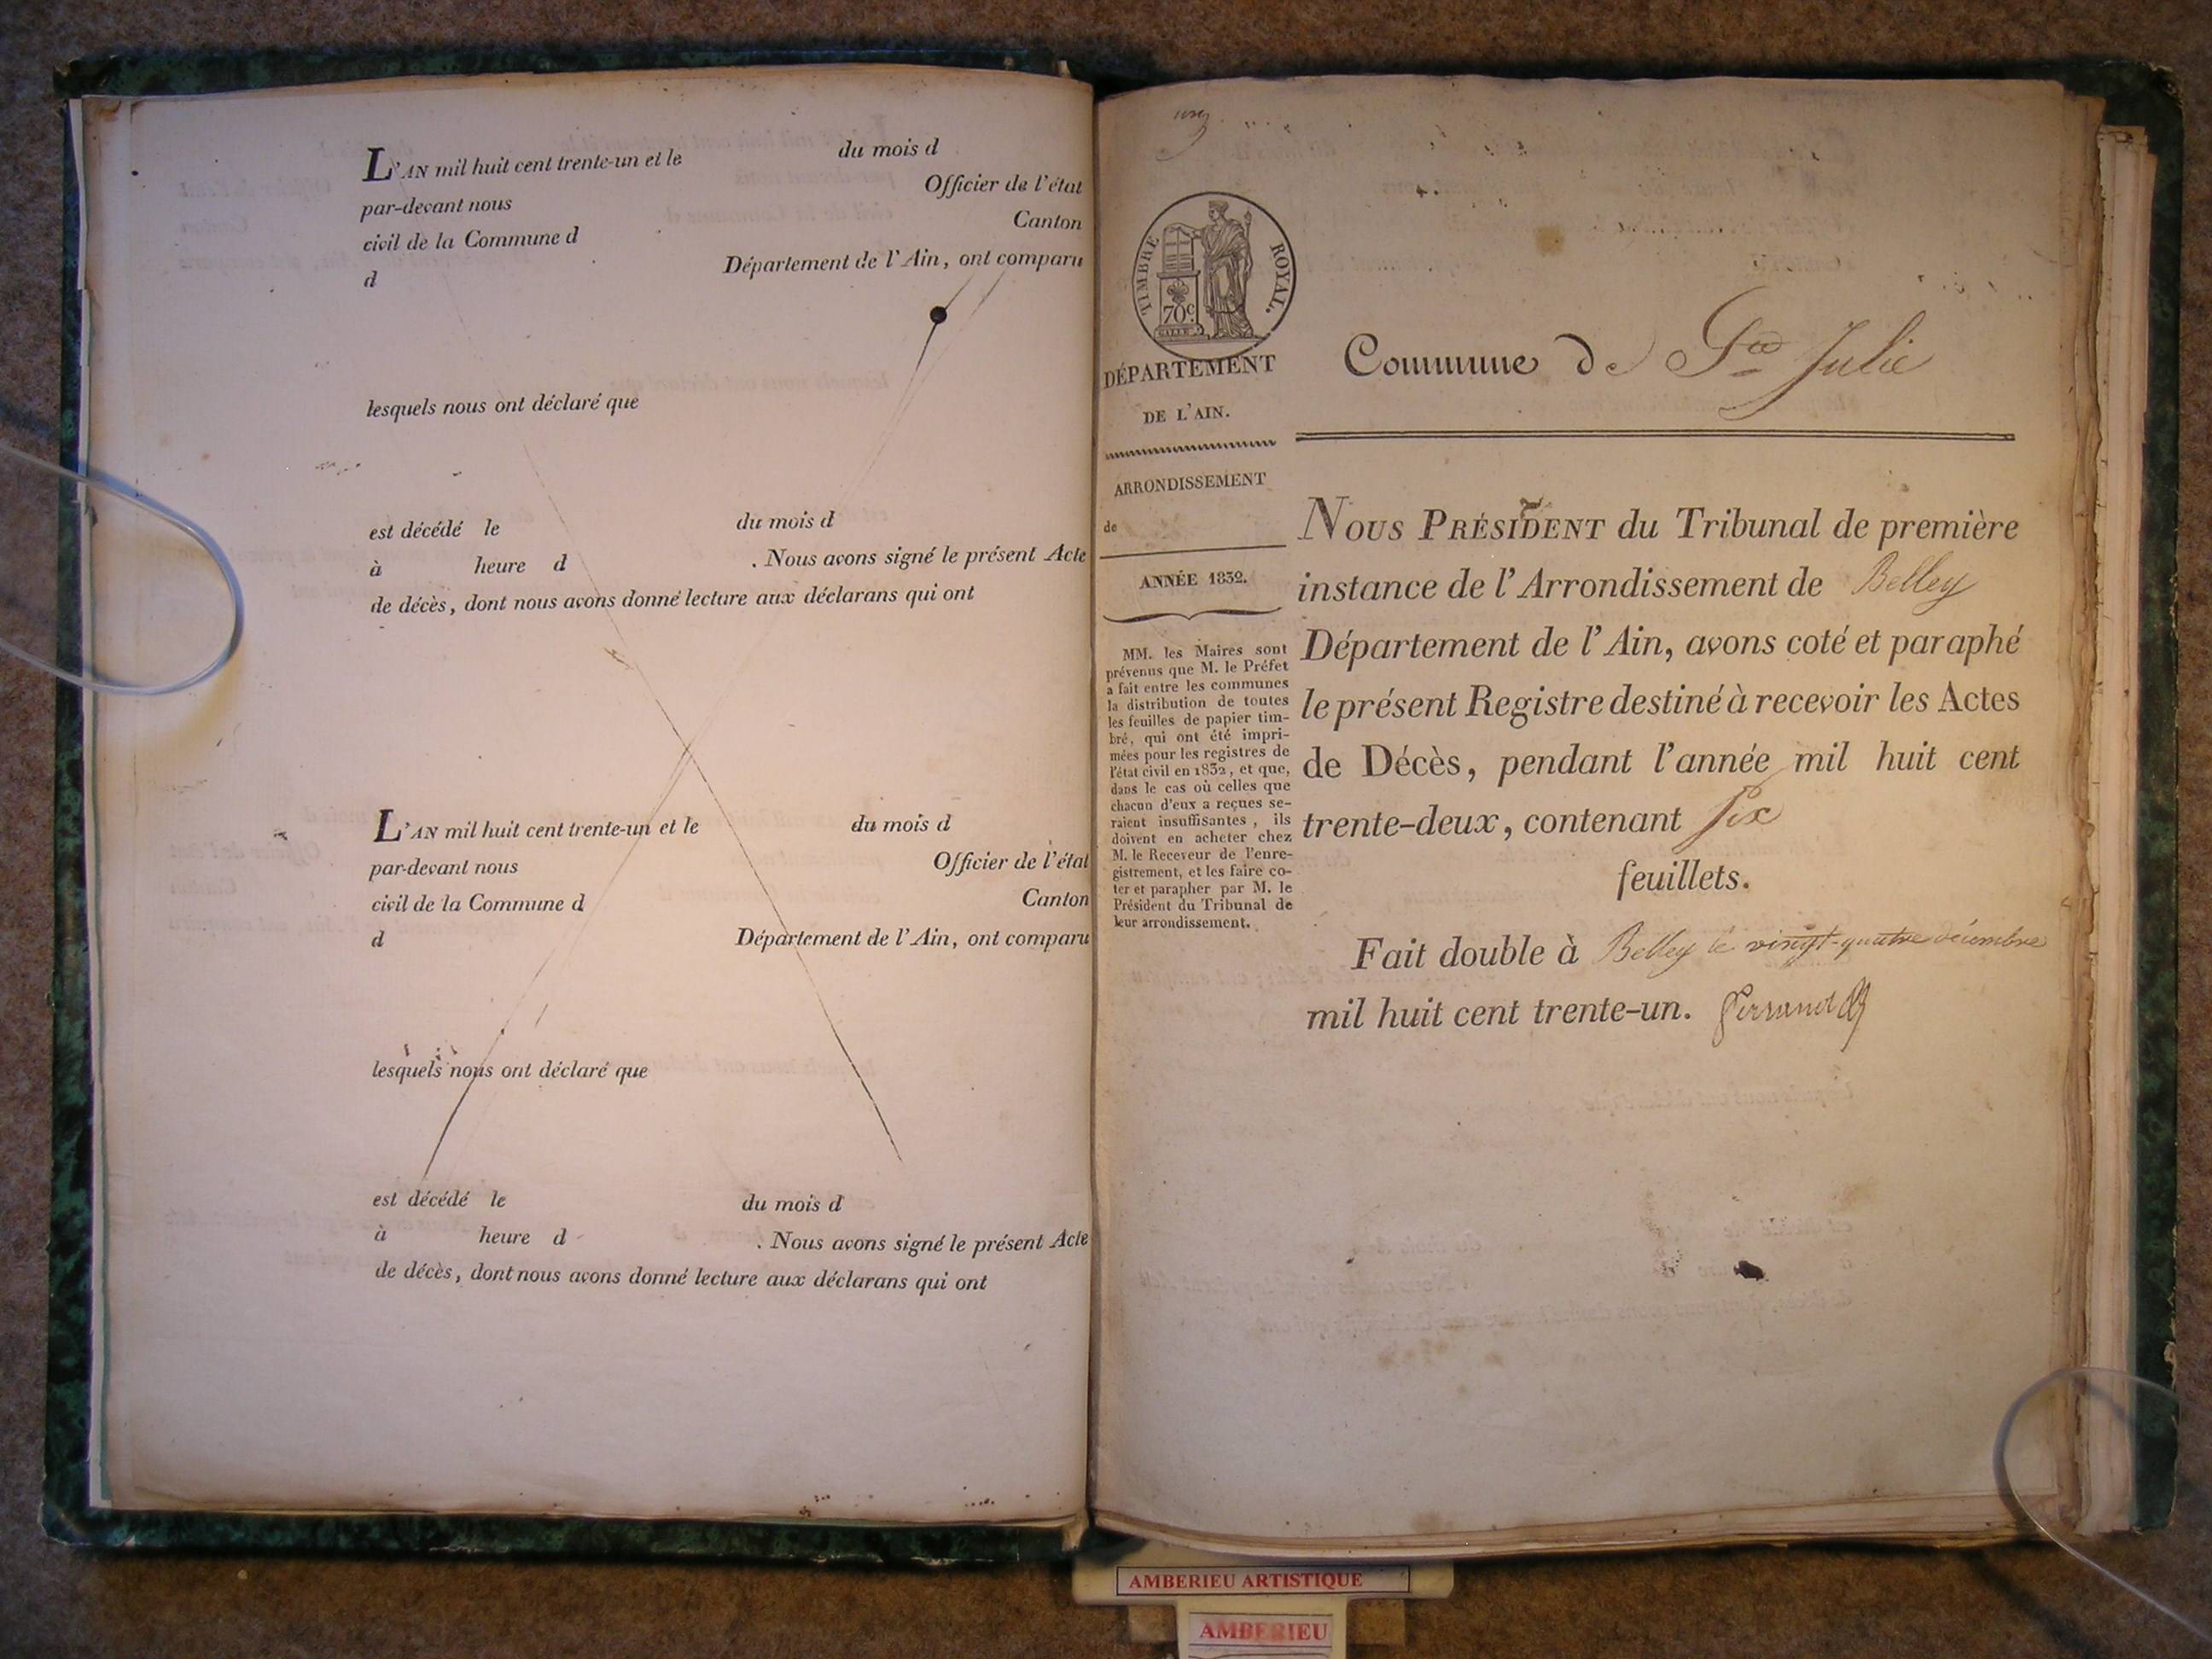 L'AN mil huit cent trente-un et le du mois d
par-devant nous Officier de l'état
civil de la Commune d Canton
d Département de l'Ain, ont comparu
lesquels nous ont déclaré que
est décédé le du mois d
à heure d . Nous avons signé le présent Acte
de décès, dont nous avons donné lecture aux déclarans qui ont
L'AN mil huit cent trente-un et le du mois d
par-devant nous Officier de l'état
civil de la Commune d Canton
d Département de l'Ain, ont comparu
lesquels nous ont déclaré que
est décédé le du mois d
à heure d . Nous avons signé le présent Acte
de décès, dont nous avons donné lecture aux déclarans qui ont
TIMBRE ROYAL.
70c.
DÉPARTEMENT
DE L'AIN.
ARRONDISSEMENT
de
ANNÉE 1832.
MM. les Maires sont
prévenus que M. le Préfet
a fait entre les communes
la distribution de toutes
les feuilles de papier tim-
bré, qui ont été impri-
mées pour les registres de
l'état civil en 1832, et que,
dans le cas où celles que
chacun d'eux a reçues se-
raient insuffisantes, ils
doivent en acheter chez
M. le Receveur de l'enre-
gistrement, et les faire co-
ter et parapher par M. le
Président du Tribunal de
leur arrondissement.
Commune de Ste Julie
NOUS PRÉSIDENT du Tribunal de première
instance de l'Arrondissement de Belley
Département de l'Ain, avons coté et paraphé
le présent Registre destiné à recevoir les Actes
de Décès, pendant l'année mil huit cent
trente-deux, contenant six
feuillets.
Fait double à Belley le vingt-quatre décembre
mil huit cent trente-un.
AMBERIEU ARTISTIQUE
AMBERIEU